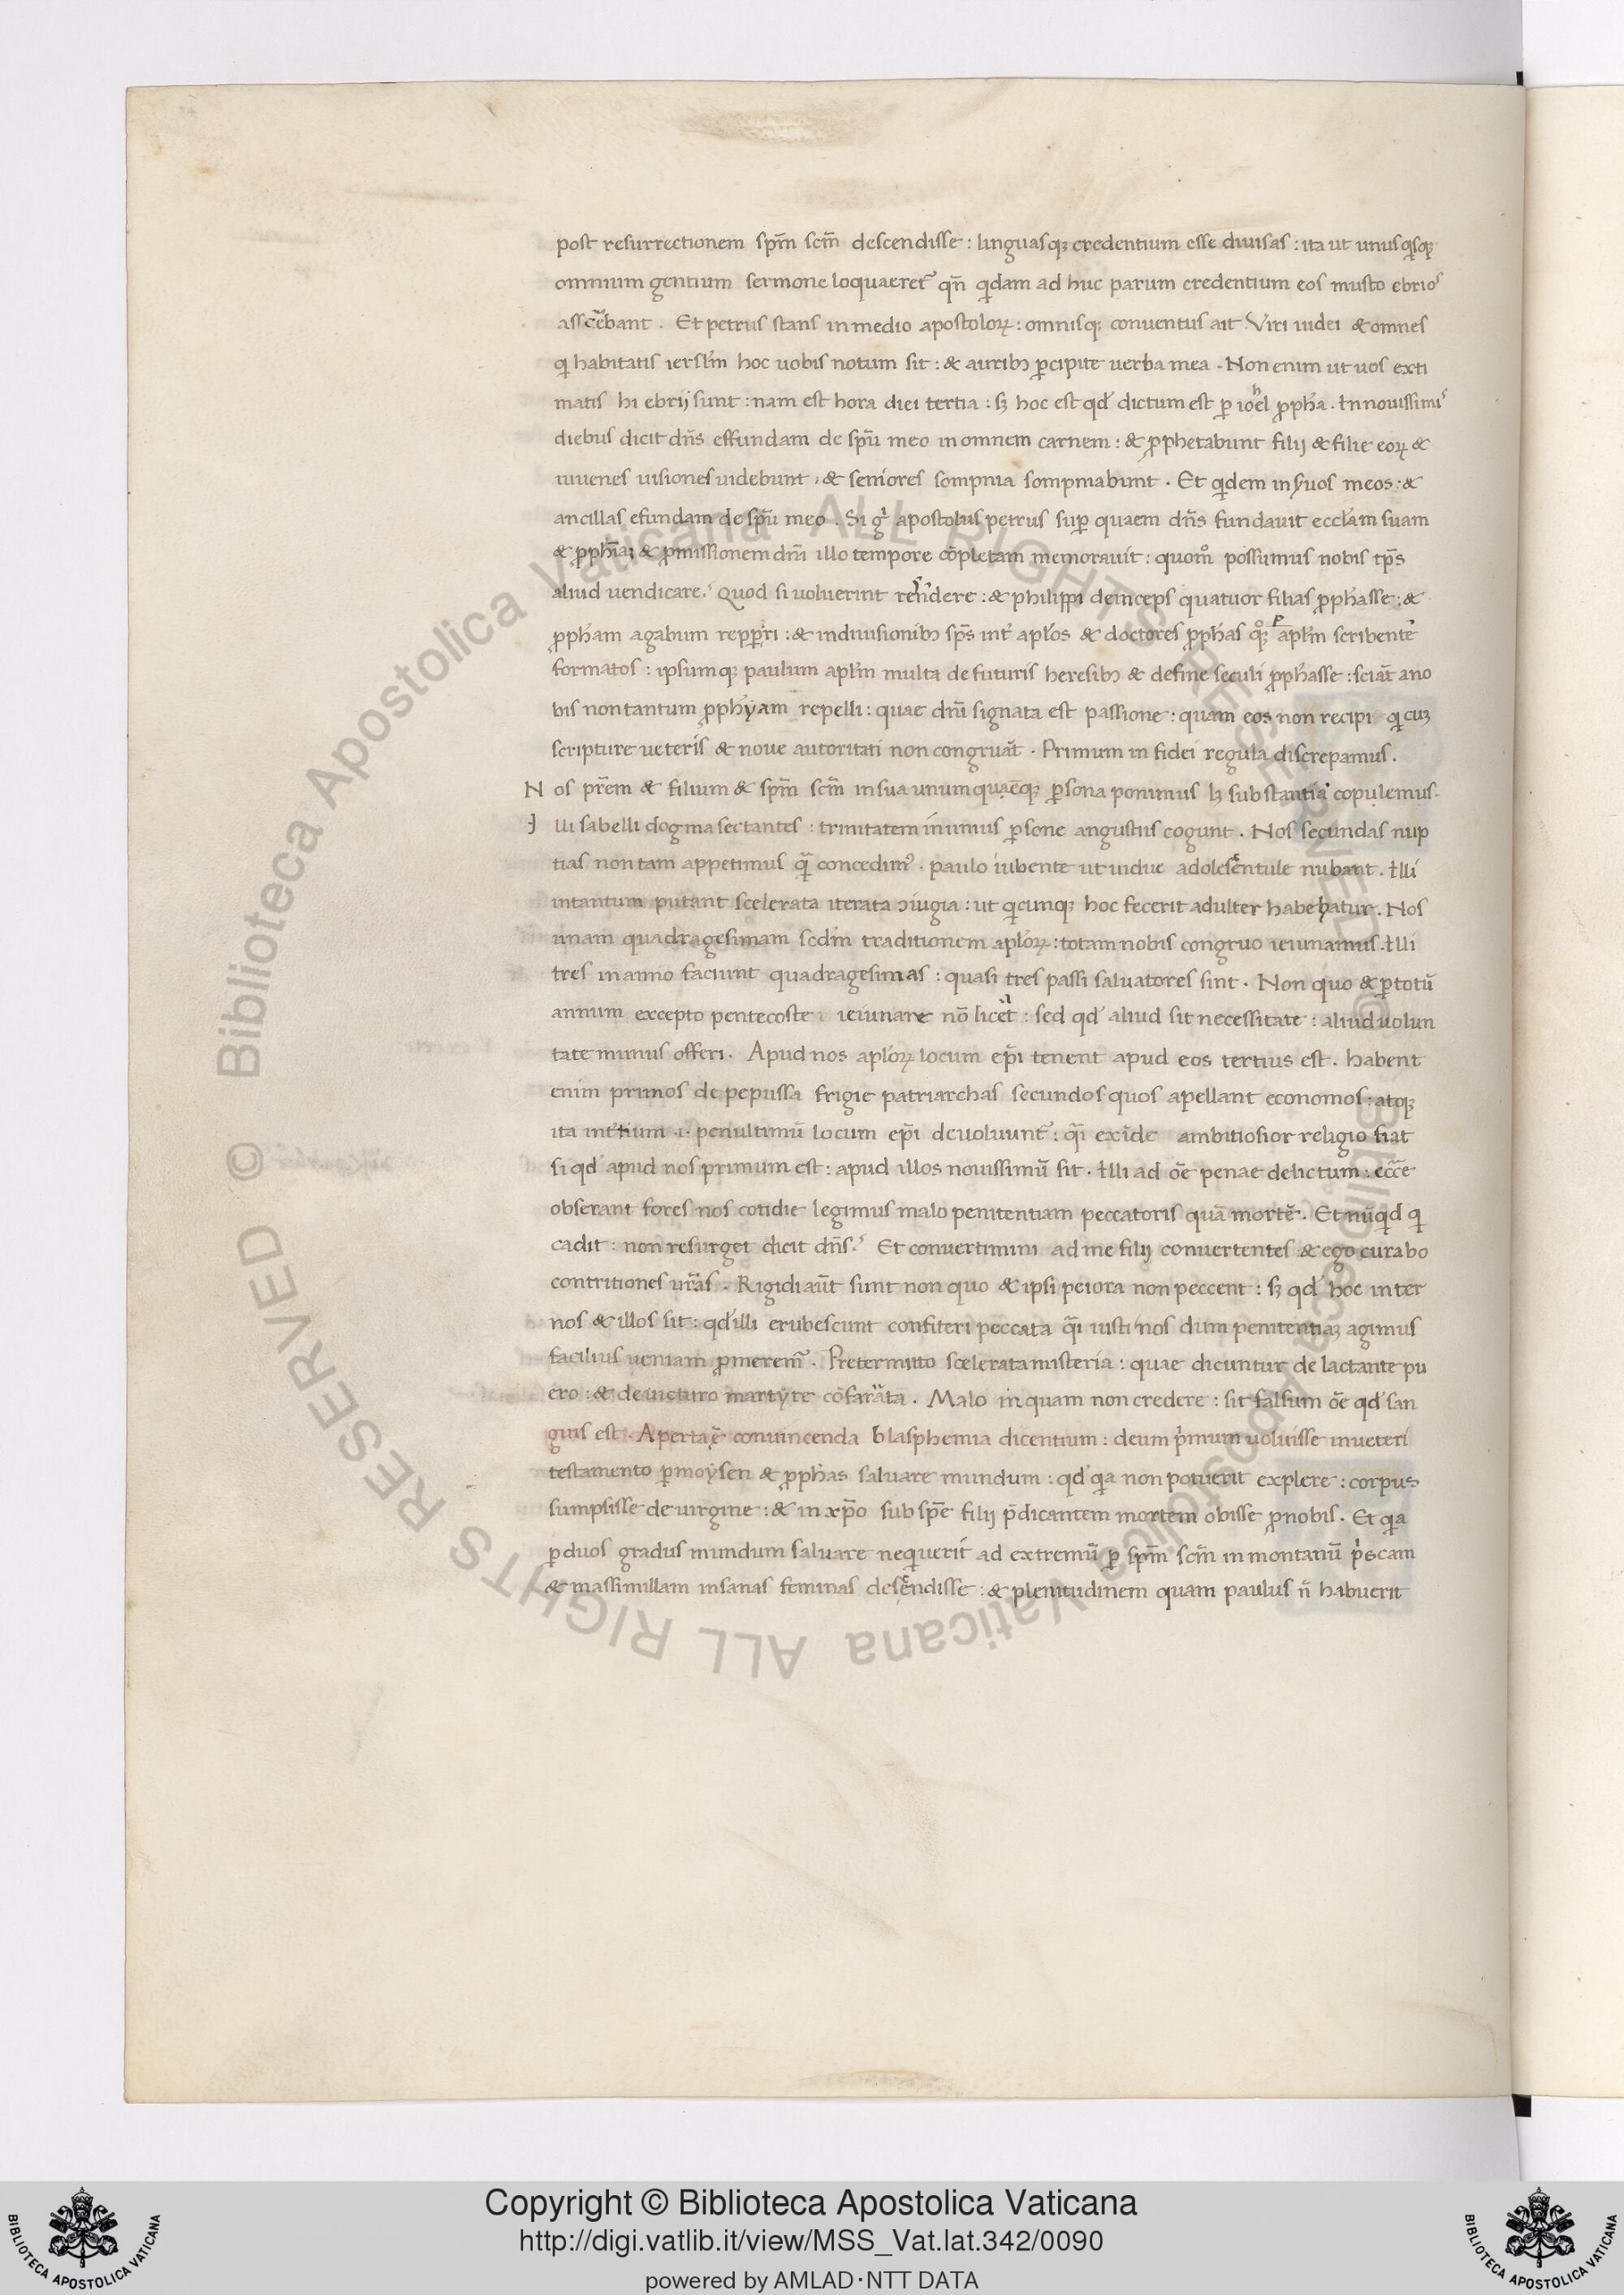 post resurrectionem sp̄m sc̄m descendisse : linguasqꝫ credentium esse diuisas : ita ut unusq̇sqꝫ
omnium gentium sermone loquaeret᷑ qn̄ q̇dam ad huc parum credentium eos musto ebrioꝰ
assc̄ebant . Et petrus stans in medio apostoloꝝ : omnisqꝫ conuentus ait Viri iudei & omnes
qi habitatis iersl̄m hoc uobis notum sit : & aurib᷒ ꝑcipite uerba mea . Non enim ut uos exti
matis hi ebrij sunt : nam est hora diei tertia : sꝫ hoc est qd̓ dictum est ꝑ iohel ꝓph̄a . In nouissimiꝰ
diebus dicit dn̄s effundam de sp̄u meo in omnem carnem : & ꝓphetabunt filij & filie eoꝝ &
iuuenes uisiones uidebunt : & seniores sompnia sompniabunt . Et q̇dem in s̄uos meos : &
ancillas efundam de sp̄u meo . Si gͥ apostolus petrus suꝑ quaem dn̄s fundauit eccl̄am suam
& ꝓph̄iaꝫ & ꝓmissionem dn̄i illo tempore cōpletam memorauit : quom̊ possumus nobis tp̄s
aliud uendicare . Quod si uoluerint rēn̄dere : & philippi deinceps quatuor filias ꝓph̄asse : &
ꝓph̄am agabum repꝑri : & in diuisionib᷒ sp̄s int̓ apl̄os & doctores ꝓph̄as q̊qꝫ apl̄m scribente
formatos : ipsumqꝫ paulum apl̄m multa de futuris heresib᷒ & de fine seculi ꝓph̄asse : sciāt a no
bis non tantum ꝓph̄yam repelli : quae dn̄i signata est passione : quam eos non recipi qi cuꝫ
scripture ueteris & noue autoritati non congruāt . Primum in fidei regula discrepamus .
N os pr̄em & filium & sp̄m sc̄m in sua unumquaēqꝫ ꝑsona ponimus lꝫ substantia copulemus .
I lli sabelli dogma sectantes : trinitatem in unius ꝑsone angustus cogunt . Nos secundas nup
tias non tam appetimus qᷓ concedimꝰ . paulo iubente ut uidue adolescentule nubant . Illi
intantum putant scelerata iterata ↄiugia : ut qicunqꝫ hoc fecerit adulter habebatur . Nos
unam quadragesimam sedm̄ traditionem apl̄oꝝ : totam nobis congruo ieiunamus . Illi
tres in anno faciunt quadragesimas : quasi tres passi saluatores sint . Non quo & ꝑ totū
annum excepto pentecoste ieiunare nō liceat : sed qd̓ aliud sit necessitate : aliud uolun
tate munus offeri . Apud nos apl̄oꝝ locum ep̄i tenent apud eos tertius est . habent
enim primos de pepussa frigie patriarchas secundos quos apellant economos : atqꝫ
ita int̓tium .i. penultimū locum ep̄i deuoluunt᷑ : qᷓi exīde ambitiosior religio fiat
si qd̓ apud nos primum est : apud illos nouissimū sit . Illi ad oē penae delictum : ecc̄e
obserant fores nos cotidie legimus malo penitentiam peccatoris quā mortē . Et nūqid qi
cadit : non resurget dicit dn̄s . Et conuertimini ad me filij conuertentes & ego curabo
contritiones ur̄as . Rigidi aūt sunt non quo & ipsi peiora non peccent : sꝫ qd̓ hoc inter
nos & illos sit : qd̓ illi erubescunt confiteri peccata qᷓi iusti nos dum penitentiaꝫ agimus
facilius ueniam ꝓmerem᷑ . Pretermitto scelerata misteria : quae dicuntur de lactante pu
ero : & de uicturo martyre cōfarata . Malo in quam non credere : sit falsum oē qd̓ san
guis est . Aperta ē conuincenda blasphemia dicentium : deum p̓mum uoluisse in ueteri
testamento ꝑ moysen & ꝓph̄as saluare mundum : qd̓ qia non potuerit explere : corpus
sumpsisse de uirgine : & in xp̄o sub sp̄e filij p̄dicantem mortem obisse ꝓ nobis . Et qia
ꝑ duos gradus mundum saluare nequerit ad extremū ꝑ sp̄m sc̄m in montanū p̓scam
& massimillam insanas feminas descendisse : & plenitudinem quam paulus n̄ habuerit
Copyright © Biblioteca Apostolica Vaticana
http://digi.vatlib.it/view/MSS_Vat.lat.342/0090
powered by AMLAD·NTT DATA